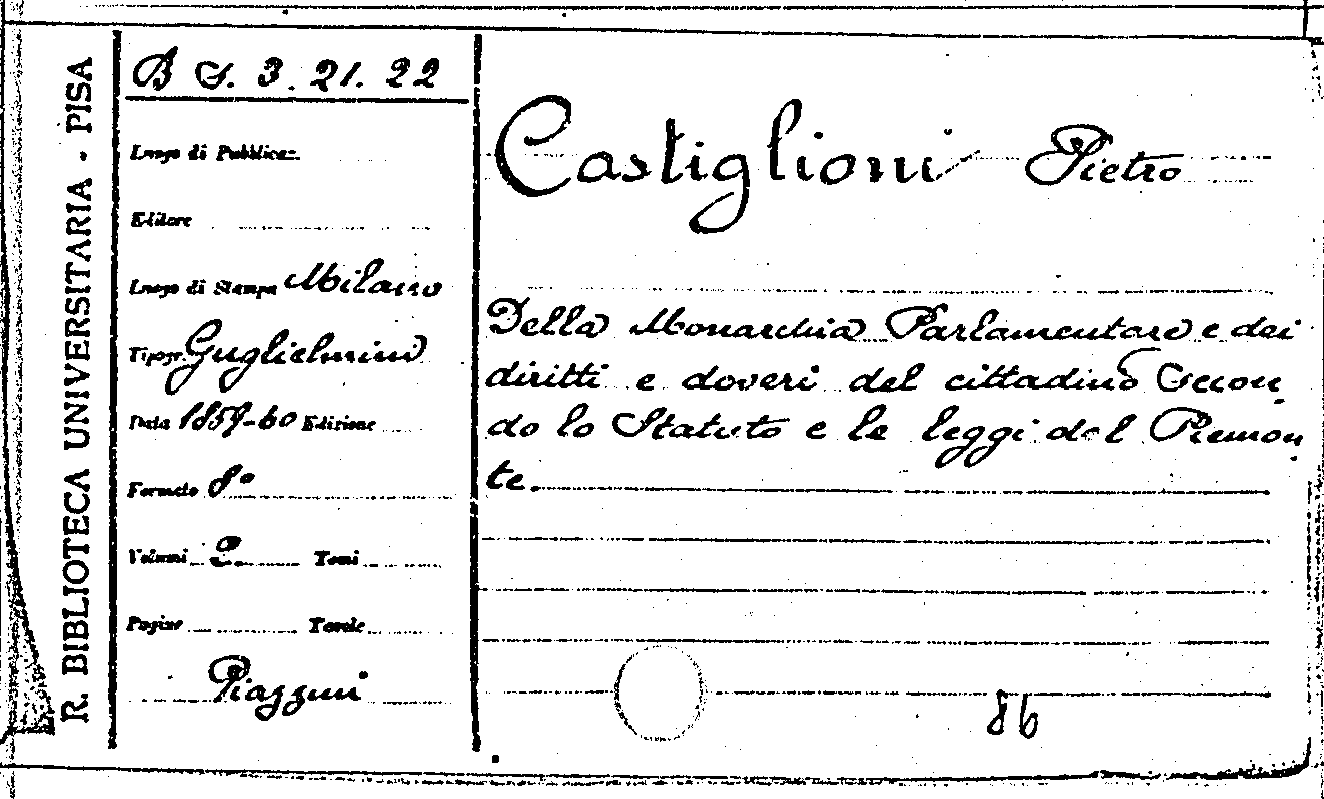 R. BIBLIOTECA UNIVERSITARIA - PISA
B S. 3. 21. 22
Luogo di Pubblicaz.
Editore
Luogo di Stampa Milano
Tipogr. Guglielmini
Data 1859-60 Edizione
Formato 8°
Volumi 2. Tomi
Pagine Tavole
Piazzini
Castiglioni Pietro
Della Monarchia Parlamentare e dei
diritti e doveri del cittadino secon
do lo Statuto e le leggi del Piemon
te.
86